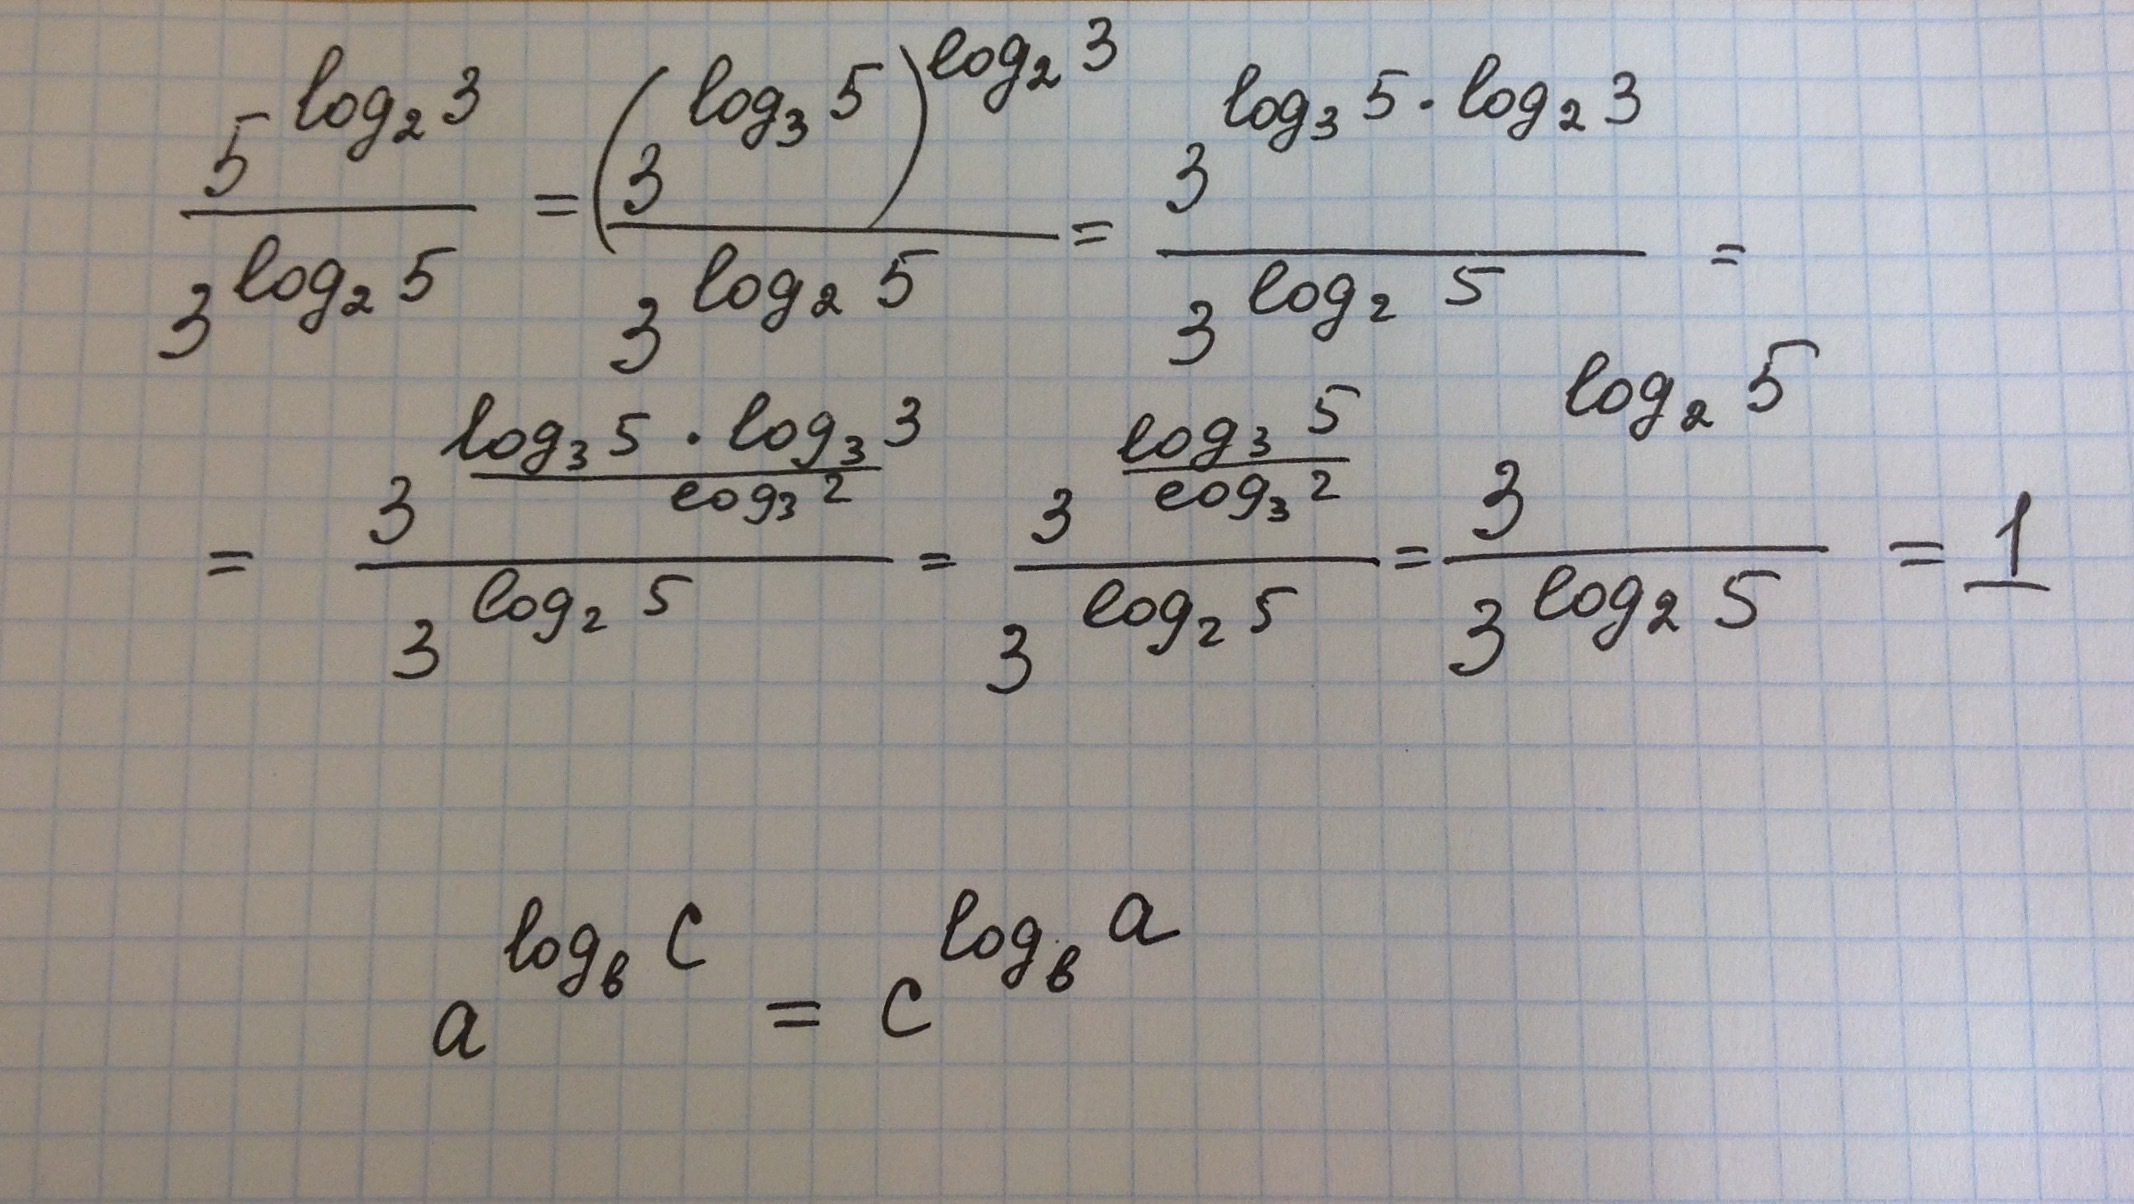 5^{log_2 3} / 3^{log_2 5} = (3^{log_3 5})^{log_2 3} / 3^{log_2 5} = 3^{log_3 5 · log_2 3} / 3^{log_2 5} =
= 3^{(log_3 5 · log_3 3) / log_3 2} / 3^{log_2 5} = 3^{log_3 5 / log_3 2} / 3^{log_2 5} = 3^{log_2 5} / 3^{log_2 5} = 1
a^{log_b c} = c^{log_b a}